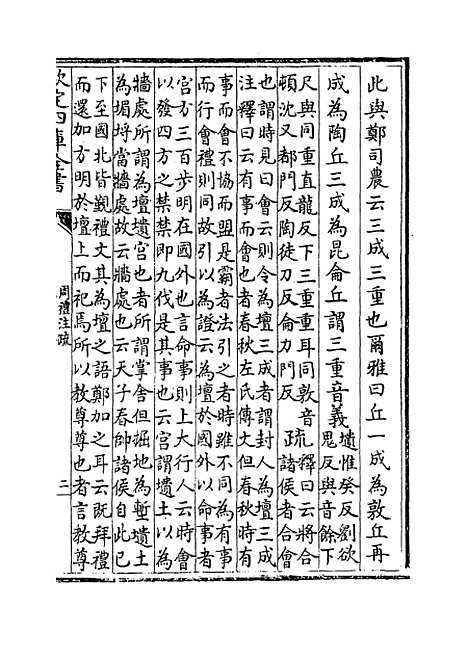 此與鄭司農云三成三重也爾雅曰丘一成為敦丘再
成為陶丘三成為昆侖丘謂三重音義壝惟癸反劉欲鬼反與音餘下
尺與同重直龍反下三重重耳同敦音
頓沈又都門反陶徒刀反侖力門反 疏釋曰云將合諸侯者合會
也謂時見曰會云則令為壇三成者謂封人為壇三成
注釋曰云有事而會也者春秋左氏傳文但春秋時有
事而會不協而盟是霸者法引之者時雖不同為有事
而行會禮則同故引以為證云為壇於國外以命事者
宮方三百步明在國外也言命事則上大行人云時會
以發四方之禁禁即九伐是其事也云宮謂壝土以為
牆處所謂為壇壝宮也者所謂掌舍但掘地為塹壝土
為堳埒當牆處故云牆處也云天子春帥諸侯自此已
下至國北皆覲禮文其為壇之語鄭加之耳云既拜禮
而還加方明於壇上而祀焉所以教尊尊也者言教尊
欽定四庫全書
周禮注疏
二